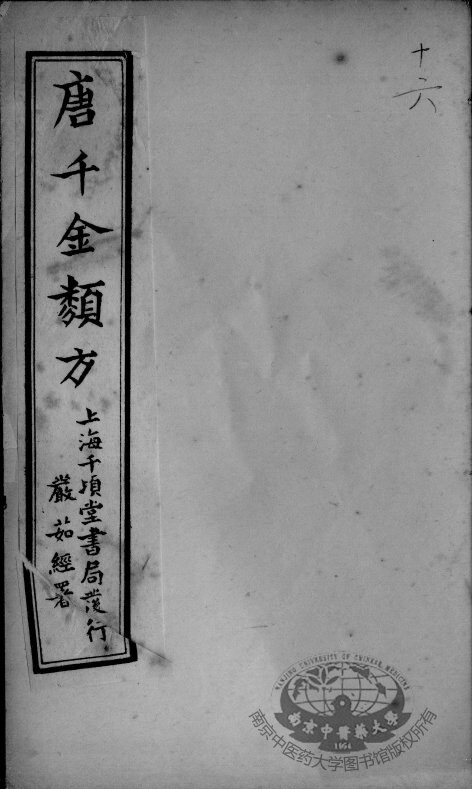 十六
唐千金類方
上海千頃堂書局發行
嚴茹經署
NANJING UNIVERSITY OF CHINESE MEDICINE
南京中醫藥大學
1954
南京中医药大学图书馆版权所有